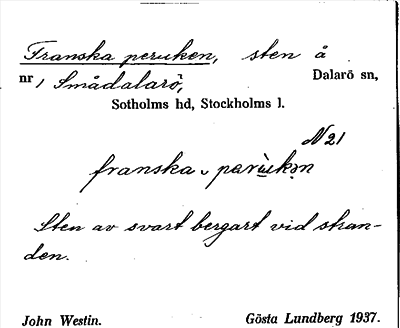 Franska peruken, sten å
nr 1 Smådalarö, Dalarö sn,
Sotholms hd, Stockholms l.
N 21
franska parùkən
Sten av svart bergart vid stran-
den.
John Westin. Gösta Lundberg 1937.